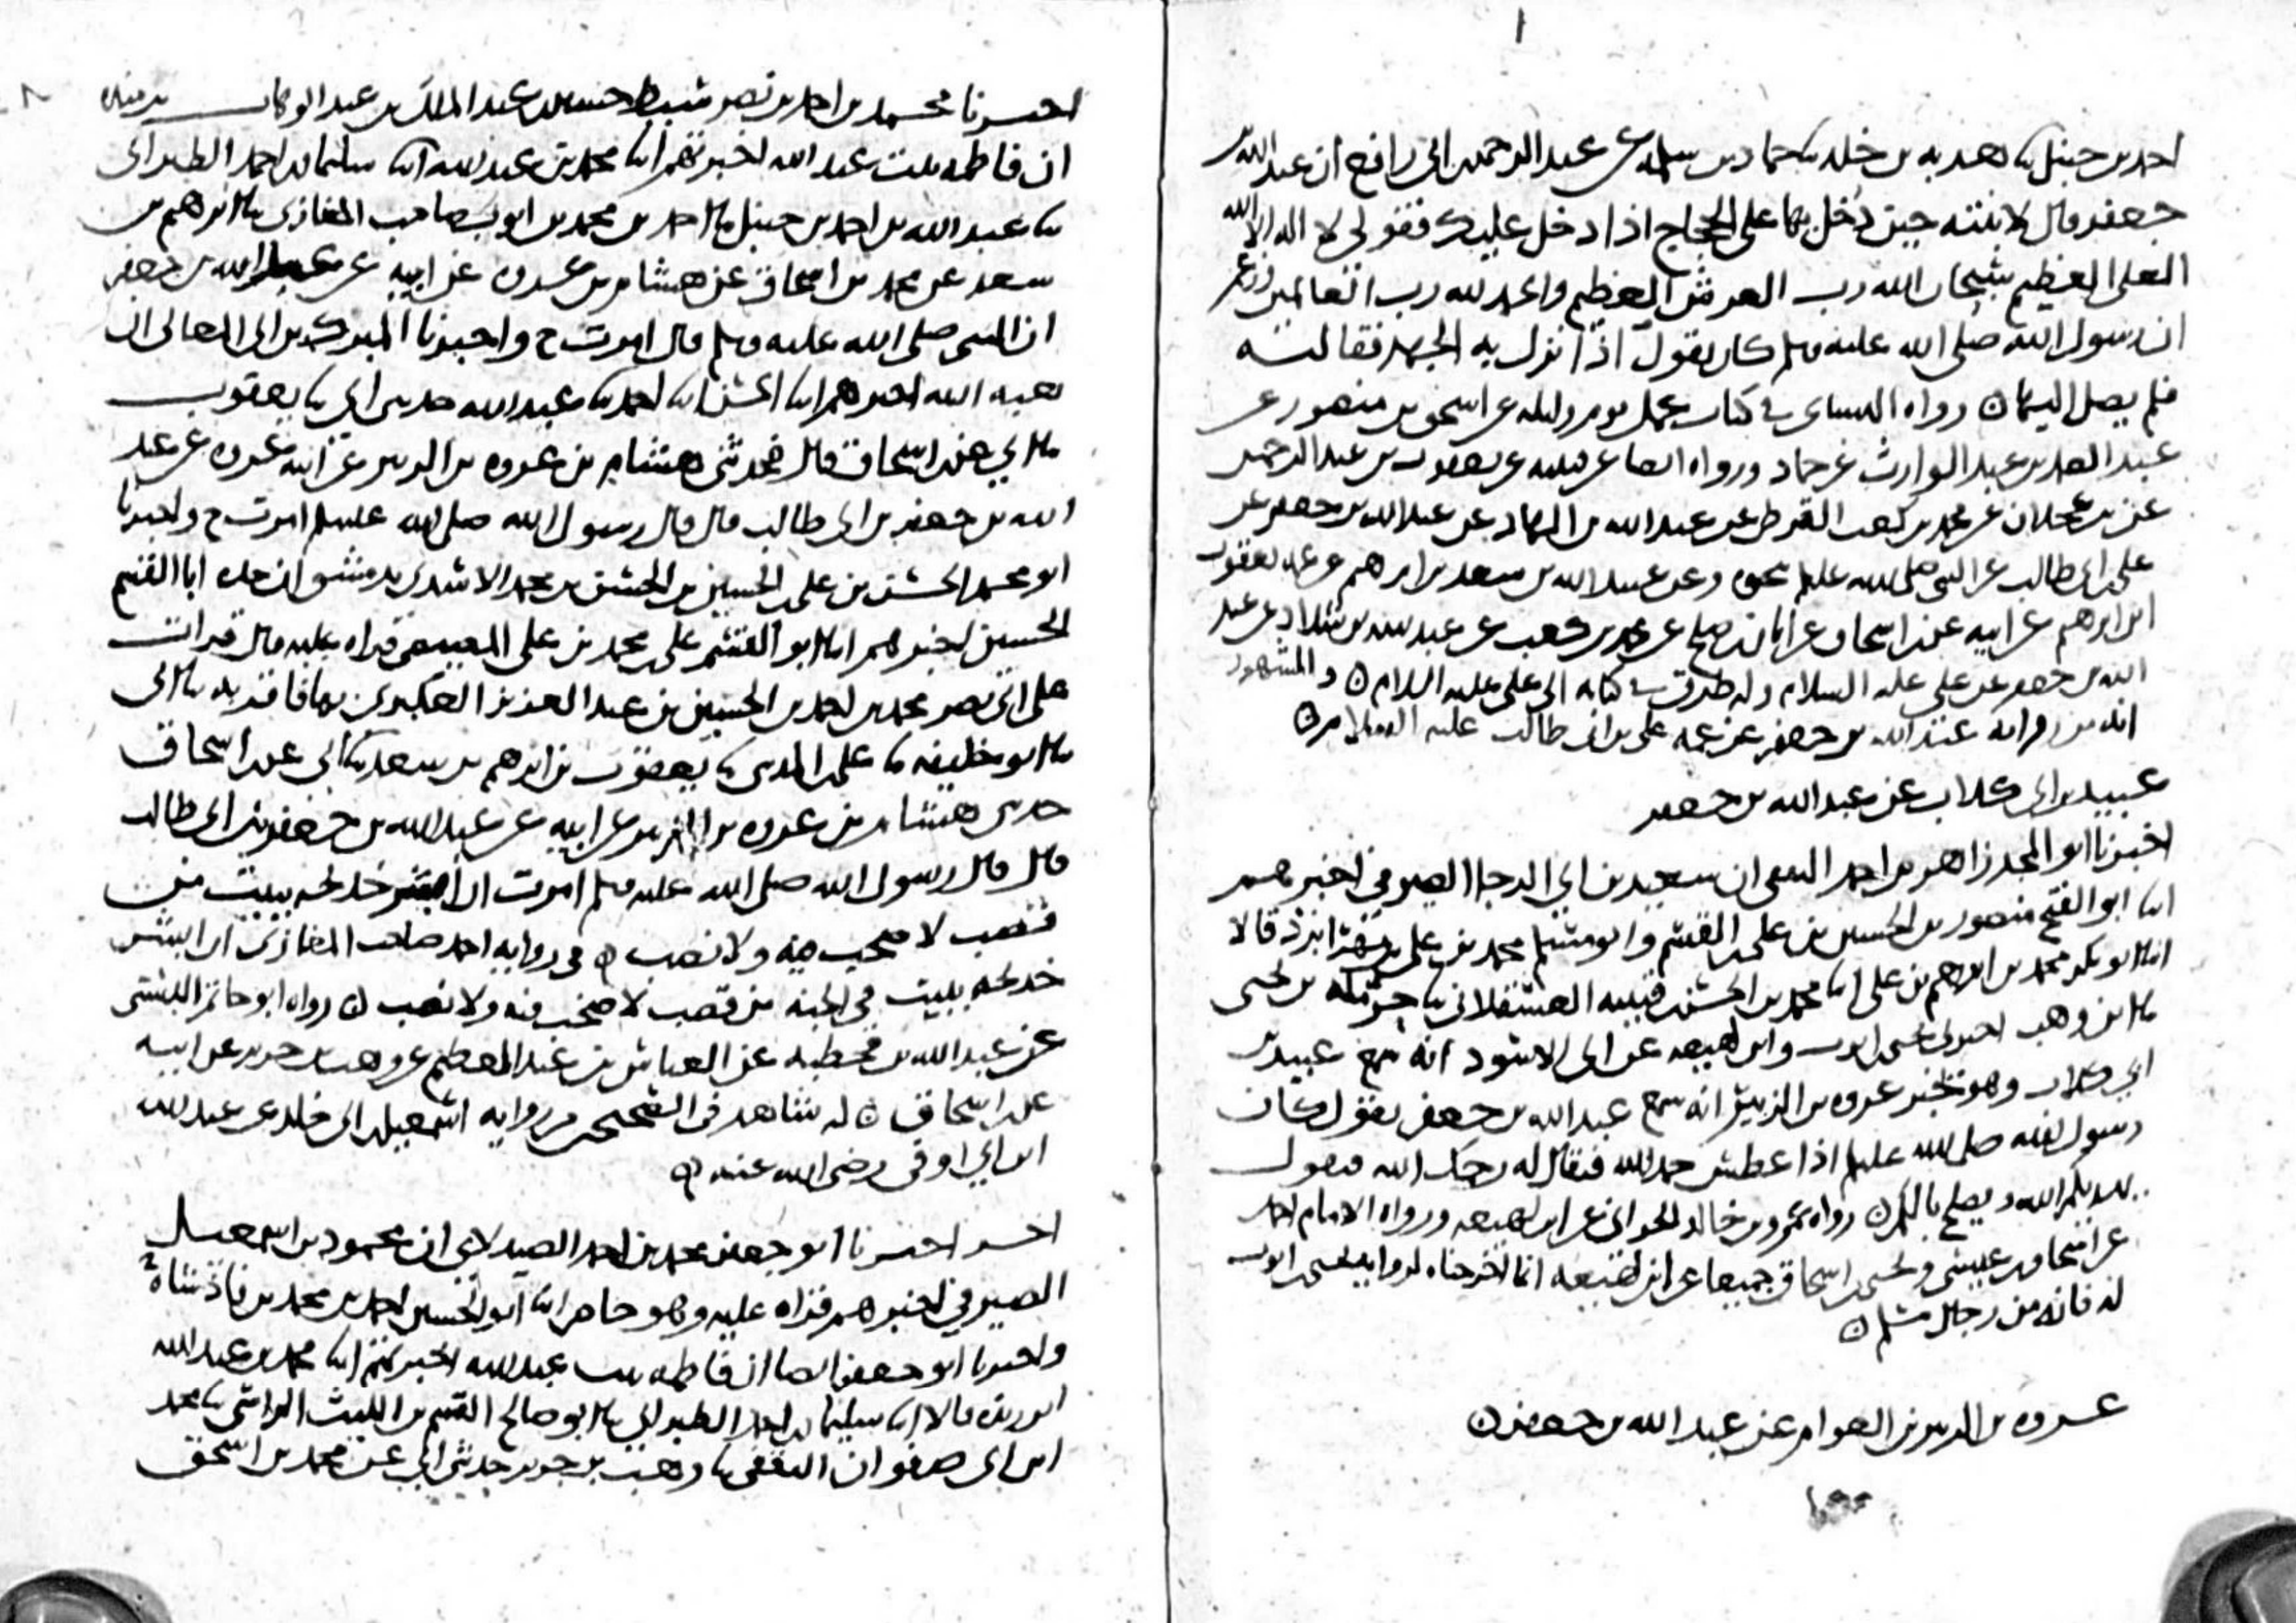 ١
احمد بن حنبل ثنا هدبه بن خلد ثنا حماد بن سلمه عن عبد الرحمن بن ابي رافع ان عبد الله بن
جعفر قال لابنته حين دخل بها على الحجاج اذا دخل عليك فقولي لا اله الا الله
العلي العظيم سبحان الله رب العرش العظيم والحمد لله رب العالمين وزعم
ان رسول الله صلى الله عليه وسلم كان يقول اذا نزل به الجهد فقالته
فلم يصل اليها ن رواه النسائي في كتاب عمل يوم وليله عن اسحق بن منصور عن
عبد الصمد بن عبد الوارث عن حماد ورواه ايضا عن قتيبه عن يعقوب بن عبد الرحمن
عن بن عجلان عن محمد بن كعب القرظي عن عبد الله بن الهاد عن عبد الله بن جعفر عن
علي بن ابي طالب عن النبي صلى الله عليه وسلم نحوه وعن عبيد الله بن سعد بن ابرهيم عن عمه يعقوب
ابن ابرهيم عن ابيه عن بن اسحاق عن ابان بن صالح عن محمد بن كعب عن عبد الله بن شداد عن عبد
الله بن جعفر عن علي عليه السلام وله طرق في كتابه الى علي عليه السلام ن والمشهور
انه من روايه عبد الله بن جعفر عن عمه علي بن ابي طالب عليه السلام ن
عبيد بن ابي كلاب عن عبد الله بن جعفر
اخبرنا ابو المجد زاهر بن احمد الثقفي ان سعيد بن ابي الرجا الصيرفي اخبرهم
ابنا ابو الفتح منصور بن الحسين بن علي بن القسم وابو مسلم محمد بن علي بن مهرابزذ قالا
انا ابو بكر محمد بن ابرهيم بن علي ابنا محمد بن الحسن بن قتيبه العسقلاني ثنا حرمله بن يحيى
ثنا بن وهب اخبرني يحيى بن ايوب وابن لهيعه عن ابي الاسود انه سمع عبيد بن
ابي كلاب وهو يخبر عروه بن الزبير انه سمع عبد الله بن جعفر يقول كان
رسول الله صلى الله عليه وسلم اذا عطس حمد الله فيقال له يرحمك الله فيقول
يهديكم الله ويصلح بالكم ن رواه عمرو بن خالد الحراني عن ابن لهيعه ورواه الامام احمد
عن اسحاق بن عيسى ويحيى بن اسحاق جميعا عن ابن لهيعه انما اخرجناه لروايه يحيى بن ايوب
له فانه من رجال مسلم ن
عروه بن الزبير بن العوام عن عبد الله بن جعفر ن
اخبرنا محمد بن احمد بن نصر سبط حسين بن عبد الملك بن عبد الوهاب بن منده
ان فاطمه بنت عبد الله اخبرتهم ابنا محمد بن عبد الله ابنا سليمان بن احمد الطبراني
ثنا عبد الله بن احمد بن حنبل ثنا احمد بن محمد بن ايوب صاحب المغازي ثنا ابرهيم بن
سعد عن محمد بن اسحاق عن هشام بن عروه عن ابيه عن عبد الله بن جعفر
ان النبي صلى الله عليه وسلم قال امرت ح واخبرنا المبرك بن ابي المعالي ان
هبه الله اخبرهم ابنا الحسن ابنا احمد ثنا عبد الله حدثني ابي ثنا يعقوب
ثنا ابي عن بن اسحاق قال فحدثني هشام بن عروه بن الزبير عن ابيه عروه عن عبد
الله بن جعفر بن ابي طالب قال قال رسول الله صلى الله عليه وسلم امرت ح واخبرنا
ابو محمد الحسن بن علي بن الحسين بن الحسن بن محمد الاسدي بدمشق ان جده ابا القسم
الحسين اخبرهم ابنا ابو القسم علي بن محمد بن علي المصيصي قراه عليه قال قرات
على ابي نصر محمد بن احمد بن الحسين بن عبد العزيز العكبري بها فاقر به ثنا ابي
ثنا ابو خليفه ثنا علي بن المديني ثنا يعقوب بن ابرهيم بن سعد ثنا ابي عن بن اسحاق
حدثني هشام بن عروه بن الزبير عن ابيه عن عبد الله بن جعفر بن ابي طالب
قال قال رسول الله صلى الله عليه وسلم امرت ان ابشر خديجه ببيت من
قصب لا صخب فيه ولا نصب ن في روايه احمد صاحب المغازي ان ابشر
خديجه ببيت في الجنه من قصب لا صخب فيه ولا نصب ن رواه ابو حاتم البستي
عن عبد الله بن قحطبه عن العباس بن عبد العظيم عن وهب بن جرير عن ابيه
عن بن اسحاق ن له شاهد في الصحيح من روايه اسمعيل بن ابي خالد عن عبد الله
ابن ابي اوفى رضي الله عنه ن
اخر اخبرنا ابو جعفر محمد بن احمد الصيدلاني ان محمود بن اسمعيل
الصيرفي اخبرهم قراه عليه وهو حاضر ابنا ابو الحسين احمد بن محمد بن فاذشاه ح
واخبرنا ابو جعفر ايضا ان فاطمه بنت عبد الله اخبرتهم ابنا محمد بن عبد الله
ابن ريذه قالا ابنا سليمان بن احمد الطبراني ثنا ابو صالح القسم بن الليث الراسبي ثنا محمد
ابن ابي صفوان الثقفي ثنا وهب بن جرير حدثني ابي عن محمد بن اسحق